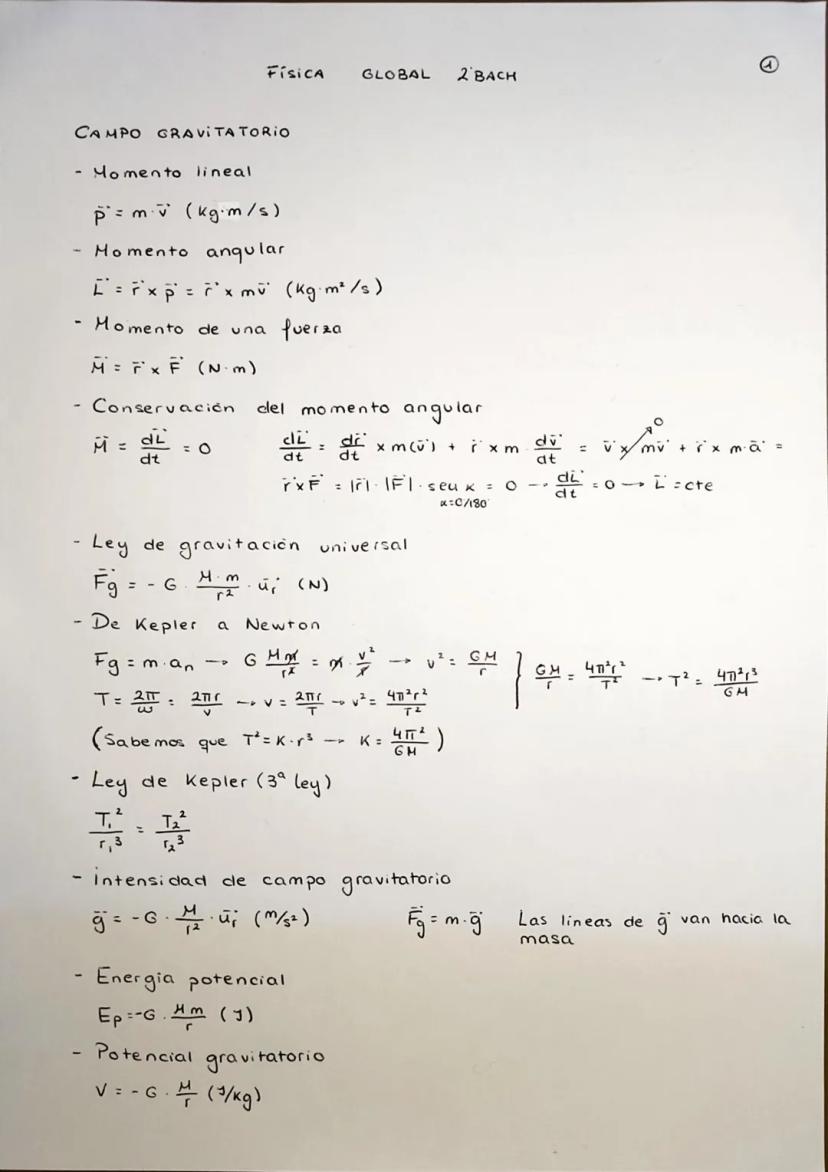 FÍSICA GLOBAL 2ºBACH
①
CAMPO GRAVITATORIO
- Momento lineal
p⃗ = m·v⃗ (Kg·m/s)
- Momento angular
L⃗ = r⃗ x p⃗ = r⃗ x mv⃗ (Kg·m²/s)
- Momento de una fuerza
M⃗ = r⃗ x F⃗ (N·m)
- Conservación del momento angular
M⃗ = dL⃗/dt = 0 dL⃗/dt = dr⃗/dt x m(v⃗) + r⃗ x m dv⃗/dt = v⃗ x mv⃗ ↗0 + r⃗ x m·a⃗ =
r⃗ x F⃗ = |r⃗|·|F⃗|·sen α = 0 → dL⃗/dt = 0 → L⃗ = cte
α=0/180
- Ley de gravitación universal
F⃗g = - G · M·m/r² · u⃗r (N)
- De Kepler a Newton
Fg = m·an → G Mm/r² = m · v²/r → v² = GM/r } GM/r = 4π²r²/T² → T² = 4π²r³/GM
T = 2π/ω = 2πr/v → v = 2πr/T → v² = 4π²r²/T²
(Sabemos que T² = K·r³ → K = 4π²/GM)
- Ley de Kepler (3ª ley)
T₁²/r₁³ = T₂²/r₂³
- Intensidad de campo gravitatorio
g⃗ = - G · M/r² · u⃗r (m/s²) F⃗g = m·g⃗ Las líneas de g⃗ van hacia la
masa
- Energía potencial
Ep = -G · Mm/r (J)
- Potencial gravitatorio
V = - G · M/r (J/kg)